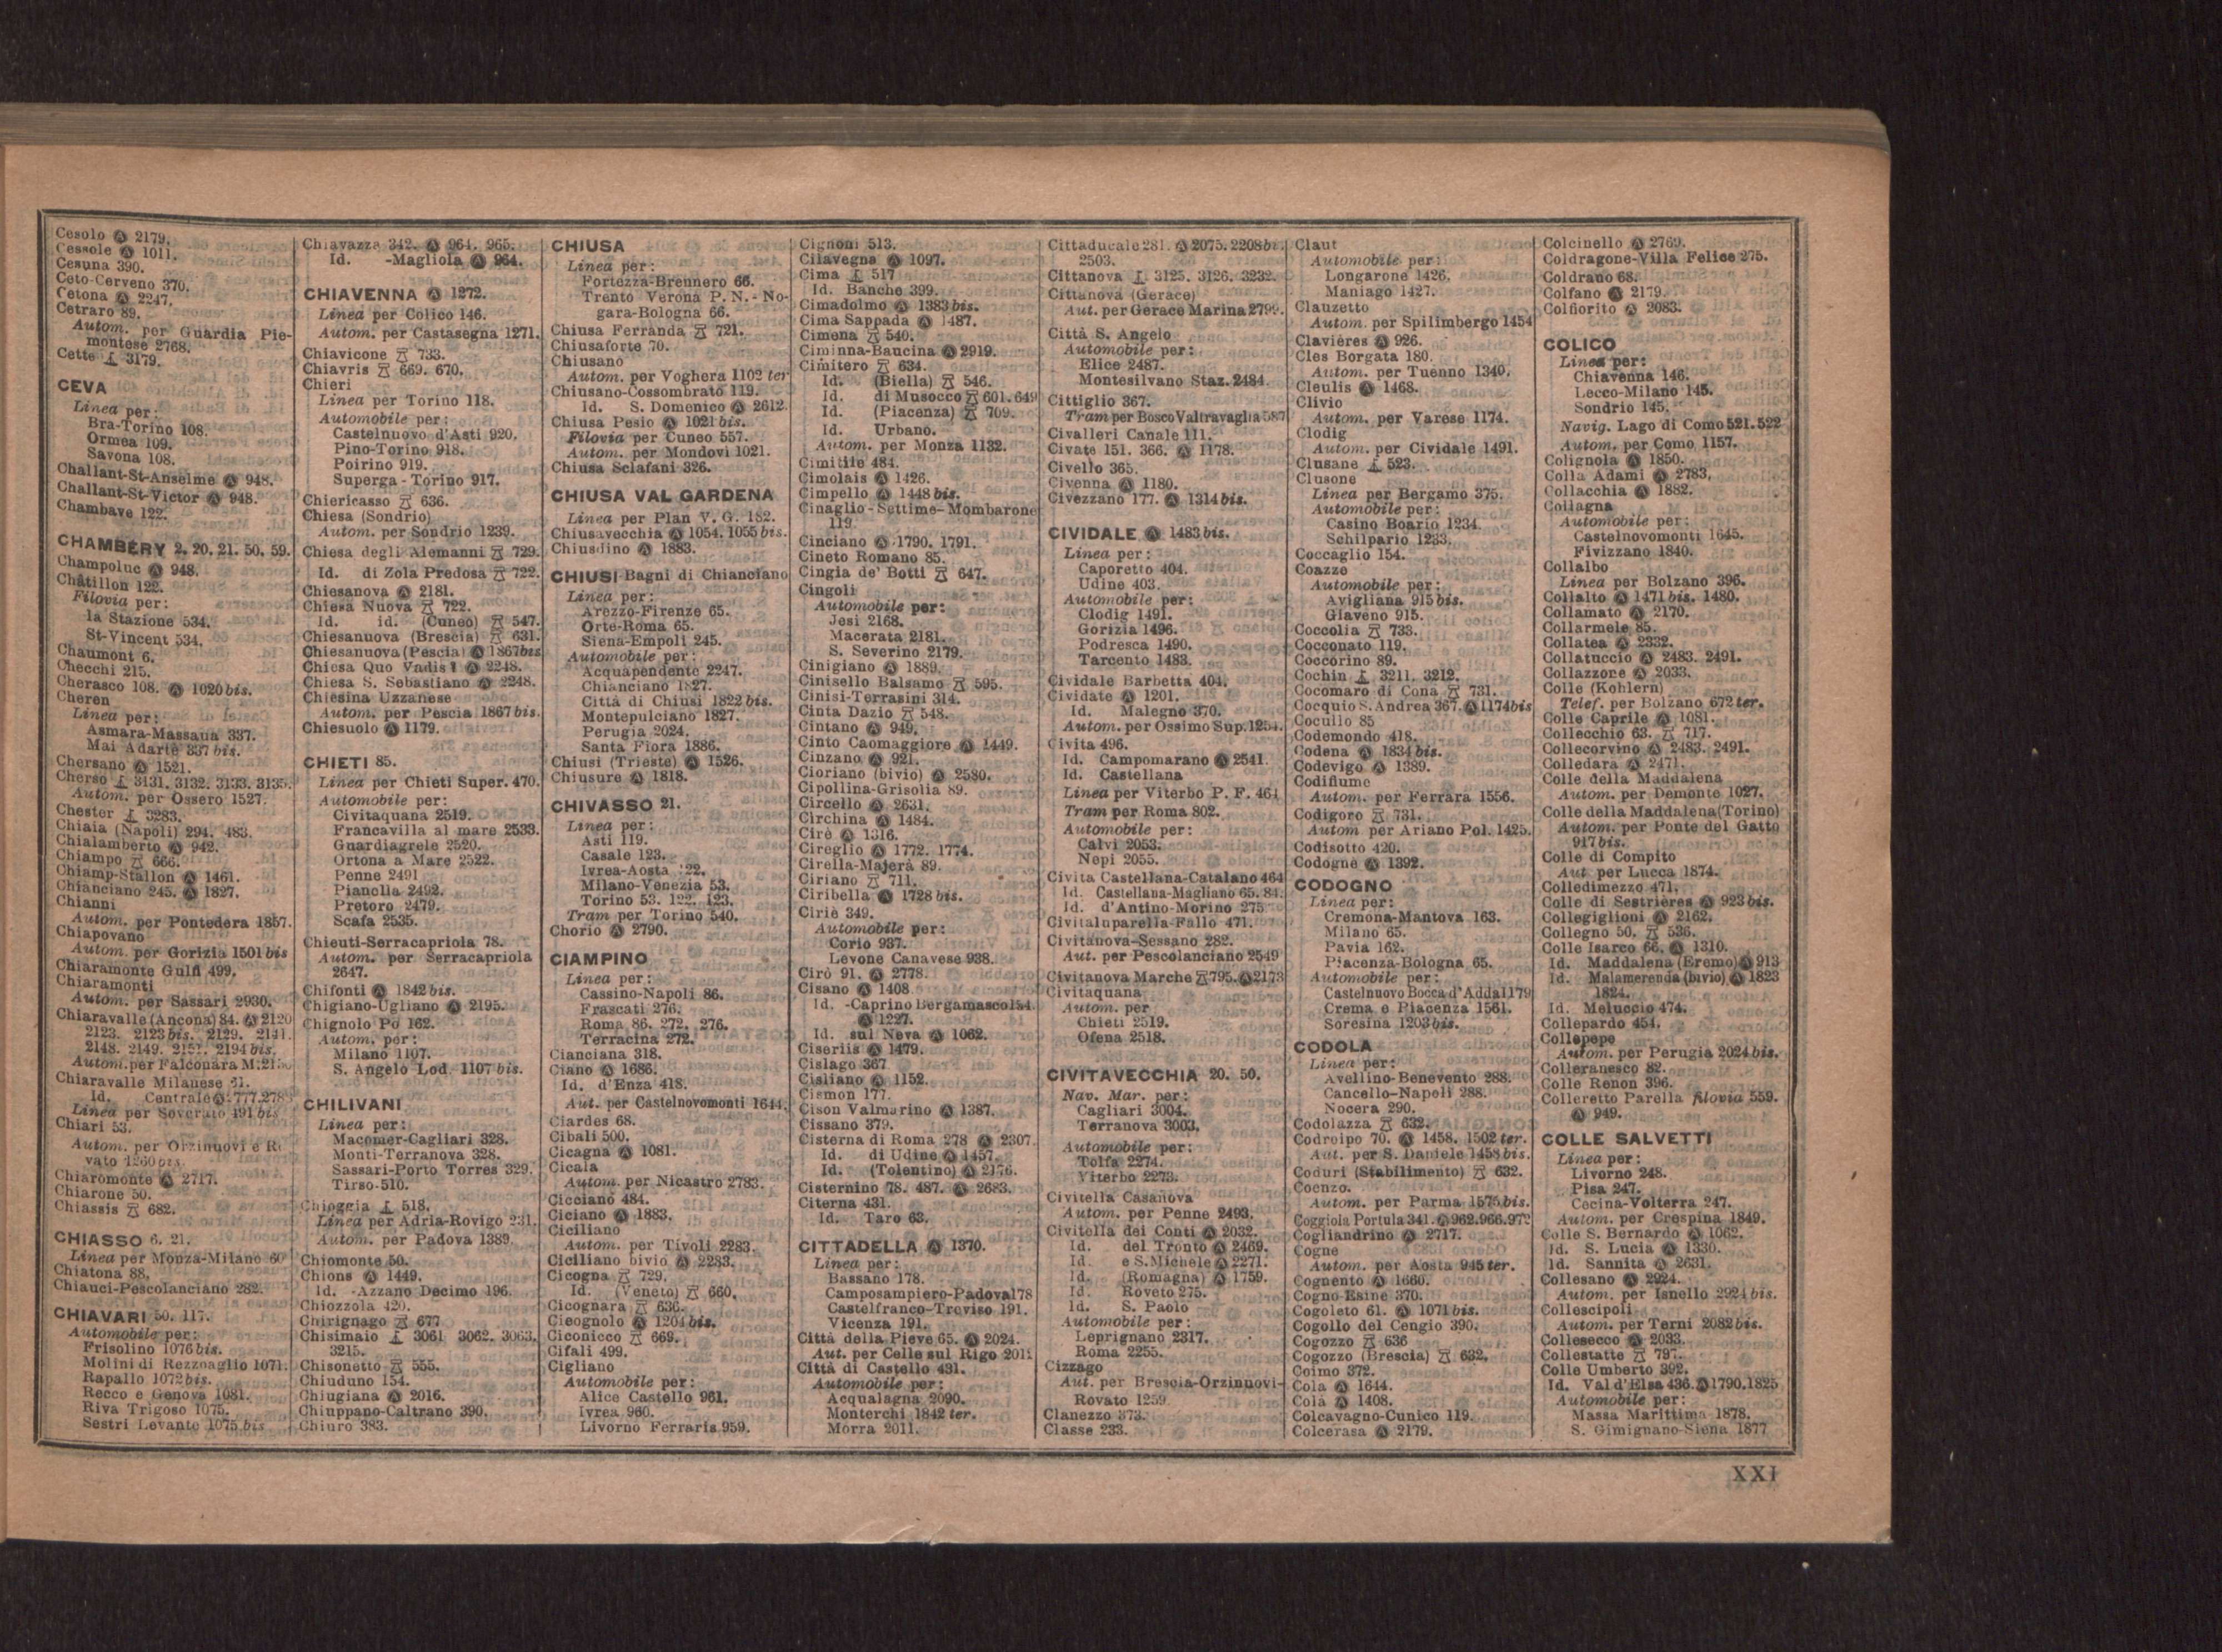 Cesolo Ⓐ 2179.
Cessole Ⓐ 1011.
Cesuna 390.
Ceto-Cerveno 370.
Cetona Ⓐ 2247.
Cetraro 89.
Autom. per Guardia Pie-
montese 2768.
Cette ⚓ 3179.
CEVA
Linea per:
Bra-Torino 108.
Ormea 109.
Savona 108.
Challant-St-Anselme Ⓐ 948.
Challant-St-Victor Ⓐ 948.
Chambave 122.
CHAMBÉRY 2. 20. 21. 50. 59.
Champoluc Ⓐ 948.
Châtillon 122.
Filovia per:
la Stazione 534.
St-Vincent 534.
Chaumont 6.
Checchi 215.
Cherasco 108. Ⓐ 1020 bis.
Cheren
Linea per:
Asmara-Massaua 337.
Mai Adarte 337 bis.
Chersano Ⓐ 1521.
Cherso ⚓ 3131. 3132. 3133. 3135.
Autom. per Ossero 1527.
Chester ⚓ 3283.
Chiaia (Napoli) 294. 483.
Chialamberto Ⓐ 942.
Chiampo 🚋 666.
Chiamp-Stallon Ⓐ 1461.
Chianciano 245. Ⓐ 1827.
Chianni
Autom. per Pontedera 1857.
Chiapovano
Autom. per Gorizia 1501 bis
Chiaramonte Gulfi 499.
Chiaramonti
Autom. per Sassari 2930.
Chiaravalle (Ancona) 84. Ⓐ 2120
2123. 2123 bis. 2129. 2141.
2148. 2149. 2194 bis.
Autom. per Falconara M.
Chiaravalle Milanese 61.
Id. Centrale Ⓐ 777.
Linea per Soverato 491 bis
Chiari 53.
Autom. per Orzinuovi e Ro
vato 1260 bis.
Chiaromonte Ⓐ 2717.
Chiarone 50.
Chiassis 🚋 682.
CHIASSO 6. 21.
Linea per Monza-Milano 60
Chiatona 88.
Chiauci-Pescolanciano 282.
CHIAVARI 50. 117.
Automobile per:
Frisolino 1076 bis.
Molini di Rezzoaglio 1071.
Rapallo 1072 bis.
Recco e Genova 1081.
Riva Trigoso 1075.
Sestri Levante 1075 bis
Chiavazza 342. Ⓐ 964. 965.
Id. -Magliola Ⓐ 964.
CHIAVENNA Ⓐ 1272.
Linea per Colico 146.
Autom. per Castasegna 1271.
Chiavicone 🚋 733.
Chiavris 🚋 669. 670.
Chieri
Linea per Torino 118.
Automobile per:
Castelnuovo d'Asti 920.
Pino-Torino 918.
Poirino 919.
Superga-Torino 917.
Chiericasso 🚋 636.
Chiesa (Sondrio)
Autom. per Sondrio 1239.
Chiesa degli Alemanni 🚋 729.
Id. di Zola Predosa 🚋 722.
Chiesanova Ⓐ 2181.
Chiesa Nuova 🚋 722.
Id. id. (Cuneo) 🚋 547.
Chiesanuova (Brescia) 🚋 631.
Chiesanuova (Pescia) Ⓐ 1867 bis
Chiesa Quo Vadis? Ⓐ 2248.
Chiesa S. Sebastiano Ⓐ 2248.
Chiesina Uzzanese
Autom. per Pescia 1867 bis.
Chiesuolo Ⓐ 1179.
CHIETI 85.
Linea per Chieti Super. 470.
Automobile per:
Civitaquana 2519.
Francavilla al mare 2533.
Guardiagrele 2520.
Ortona a Mare 2522.
Penne 2491
Pianella 2492.
Pretoro 2479.
Scafa 2535.
Chieuti-Serracapriola 78.
Autom. per Serracapriola
2647.
Chifonti Ⓐ 1842 bis.
Chigiano-Ugliano Ⓐ 2195.
Chignolo Po 162.
Autom. per:
Milano 1107.
S. Angelo Lod. 1107 bis.
CHILIVANI
Linea per:
Macomer-Cagliari 328.
Monti-Terranova 328.
Sassari-Porto Torres 329.
Tirso-510.
Chioggia ⚓ 518.
Linea per Adria-Rovigo 231.
Autom. per Padova 1389.
Chiomonte 50.
Chions Ⓐ 1449.
Id. -Azzano Decimo 196.
Chiozzola 420.
Chirignago 🚋 677
Chisimaio ⚓ 3061 3062. 3063.
3215.
Chisonetto 🚋 555.
Chiuduno 154.
Chiugiana Ⓐ 2016.
Chiuppano-Caltrano 390.
Chiuro 383.
CHIUSA
Linea per:
Fortezza-Brennero 66.
Trento Verona P. N.- No-
gara-Bologna 66.
Chiusa Ferranda 🚋 721.
Chiusaforte 70.
Chiusano
Autom. per Voghera 1102 ter
Chiusano-Cossombrato 119.
Id. S. Domenico Ⓐ 2612.
Chiusa Pesio Ⓐ 1021 bis.
Filovia per Cuneo 557.
Autom. per Mondovì 1021.
Chiusa Sclafani 326.
CHIUSA VAL GARDENA
Linea per Plan V. G. 182.
Chiusavecchia Ⓐ 1054. 1055 bis.
Chiusdino Ⓐ 1883.
CHIUSI-Bagni di Chianciano
Linea per:
Arezzo-Firenze 65.
Orte-Roma 65.
Siena-Empoli 245.
Automobile per:
Acquapendente 2247.
Chianciano 1827.
Città di Chiusi 1822 bis.
Montepulciano 1827.
Perugia 2024.
Santa Fiora 1886.
Chiusi (Trieste) Ⓐ 1526.
Chiusure Ⓐ 1818.
CHIVASSO 21.
Linea per:
Asti 119.
Casale 123.
Ivrea-Aosta 122.
Milano-Venezia 53.
Torino 53. 122. 123.
Tram per Torino 540.
Chorio Ⓐ 2790.
CIAMPINO
Linea per:
Cassino-Napoli 86.
Frascati 276.
Roma 86. 272. 276.
Terracina 272.
Cianciana 318.
Ciano Ⓐ 1686.
Id. d'Enza 418.
Aut. per Castelnovomonti 1644.
Ciardes 68.
Cibali 500.
Cicagna Ⓐ 1081.
Cicala
Autom. per Nicastro 2783.
Cicciano 484.
Ciciano Ⓐ 1883.
Ciciliano
Autom. per Tivoli 2283.
Ciciliano bivio Ⓐ 2283.
Cicogna 🚋 729.
Id. (Veneto) 🚋 660.
Cicognara 🚋 636.
Cicognolo Ⓐ 1204 bis.
Ciconicco 🚋 669.
Cifali 499.
Cigliano
Automobile per:
Alice Castello 961.
Ivrea 960.
Livorno Ferraris 959.
Cignoni 513.
Cilavegna Ⓐ 1097.
Cima ⚓ 517
Id. Banche 399.
Cimadolmo Ⓐ 1383 bis.
Cima Sappada Ⓐ 1487.
Cimena 🚋 540.
Ciminna-Baucina Ⓐ 2919.
Cimitero 🚋 634.
Id. (Biella) 🚋 546.
Id. di Musocco 🚋 601. 649
Id. (Piacenza) 🚋 709.
Id. Urbano.
Autom. per Monza 1132.
Cimitile 484.
Cimolais Ⓐ 1426.
Cimpello Ⓐ 1448 bis.
Cinaglio-Settime-Mombarone
119.
Cinciano Ⓐ 1790. 1791.
Cineto Romano 85.
Cingia de' Botti 🚋 647.
Cingoli
Automobile per:
Jesi 2168.
Macerata 2181.
S. Severino 2179.
Cinigiano Ⓐ 1889.
Cinisello Balsamo 🚋 595.
Cinisi-Terrasini 314.
Cinta Dazio 🚋 548.
Cintano Ⓐ 949.
Cinto Caomaggiore Ⓐ 1449.
Cinzano Ⓐ 921.
Cioriano (bivio) Ⓐ 2580.
Cipollina-Grisolia 89.
Circello Ⓐ 2631.
Circhina Ⓐ 1484.
Cirè Ⓐ 1316.
Cireglio Ⓐ 1772. 1774.
Cirella-Majerà 89.
Ciriano 🚋 711.
Ciribella Ⓐ 1728 bis.
Ciriè 349.
Automobile per:
Corio 937.
Levone Canavese 938.
Cirò 91. Ⓐ 2778.
Cisano Ⓐ 1408
Id. -Caprino Bergamasco 154.
Ⓐ 1227.
Id. sul Neva Ⓐ 1062.
Ciseriis Ⓐ 1479.
Cislago 367
Cisliano Ⓐ 1152.
Cismon 177.
Cison Valmarino Ⓐ 1387.
Cissano 379.
Cisterna di Roma 278 Ⓐ 2307.
Id. di Udine Ⓐ 1457.
Id. (Tolentino) Ⓐ 2176.
Cisternino 78. 487. Ⓐ 2683.
Citerna 431.
Id. Taro 63.
CITTADELLA Ⓐ 1370.
Linea per:
Bassano 178.
Camposampiero-Padova 178
Castelfranco-Treviso 191.
Vicenza 191.
Città della Pieve 65. Ⓐ 2024.
Aut. per Celle sul Rigo 2011
Città di Castello 431.
Automobile per:
Acqualagna 2090.
Monterchi 1842 ter.
Morra 2011.
Cittaducale 281. Ⓐ 2075. 2208 bis.
2503.
Cittanova ⚓ 3125. 3126. 3232.
Cittanova (Gerace)
Aut. per Gerace Marina 2799.
Città S. Angelo
Automobile per:
Elice 2487.
Montesilvano Staz. 2484.
Cittiglio 367.
Tram per Bosco Valtravaglia 587
Civalleri Canale 111.
Civate 151. 366. Ⓐ 1178.
Civello 365.
Civenna Ⓐ 1180.
Civezzano 177. Ⓐ 1314 bis.
CIVIDALE Ⓐ 1483 bis.
Linea per:
Caporetto 404.
Udine 403.
Automobile per:
Clodig 1491.
Gorizia 1496.
Podresca 1490.
Tarcento 1483.
Cividale Barbetta 404.
Cividate Ⓐ 1201.
Id. Malegno 370.
Autom. per Ossimo Sup. 1254.
Civita 496.
Id. Campomarano Ⓐ 2541.
Id. Castellana
Linea per Viterbo P. F. 464
Tram per Roma 802.
Automobile per:
Calvi 2053.
Nepi 2055.
Civita Castellana-Catalano 464
Id. Castellana-Magliano 65. 84.
Id. d'Antino-Morino 275
Civitaluparella-Fallo 471.
Civitanova-Sessano 282.
Aut. per Pescolanciano 2549
Civitanova Marche 🚋 795. Ⓐ 2173
Civitaquana
Autom. per
Chieti 2519.
Ofena 2518.
CIVITAVECCHIA 20. 50.
Nav. Mar. per:
Cagliari 3004.
Terranova 3003.
Automobile per:
Tolfa 2274.
Viterbo 2273.
Civitella Casanova
Autom. per Penne 2493.
Civitella dei Conti Ⓐ 2032.
Id. del Tronto Ⓐ 2469.
Id. e S. Michele Ⓐ 2271.
Id. (Romagna) Ⓐ 1759.
Id. Roveto 275.
Id. S. Paolo
Automobile per:
Leprignano 2317.
Roma 2255.
Cizzago
Aut. per Brescia-Orzinuovi-
Rovato 1259.
Clanezzo 373.
Classe 233.
Claut
Automobile per:
Longarone 1426.
Maniago 1427.
Clauzetto
Autom. per Spilimbergo 1454
Clavières Ⓐ 926.
Cles Borgata 180.
Autom. per Tuenno 1340.
Cleulis Ⓐ 1468.
Clivio
Autom. per Varese 1174.
Clodig
Autom. per Cividale 1491.
Clusane ⚓ 523.
Clusone
Linea per Bergamo 375.
Automobile per:
Casino Boario 1234.
Schilpario 1233.
Coccaglio 154.
Coazze
Automobile per:
Avigliana 915 bis.
Giaveno 915.
Coccolia 🚋 733.
Cocconato 119.
Coccorino 89.
Cochin ⚓ 3211. 3212.
Cocomaro di Cona 🚋 731.
Cocquio S. Andrea 367. Ⓐ 1174 bis
Cocullo 85
Codemondo 418.
Codena Ⓐ 1834 bis.
Codevigo Ⓐ 1389.
Codifiume
Autom. per Ferrara 1556.
Codigoro 🚋 731.
Autom per Ariano Pol. 1425.
Codisotto 420.
Codognè Ⓐ 1392.
CODOGNO
Linea per:
Cremona-Mantova 163.
Milano 65.
Pavia 162.
Piacenza-Bologna 65.
Automobile per:
Castelnuovo Bocca d'Adda 1179
Crema e Piacenza 1561.
Soresina 1203 bis.
CODOLA
Linea per:
Avellino-Benevento 288.
Cancello-Napoli 288.
Nocera 290.
Codolazza 🚋 632.
Codroipo 70. Ⓐ 1458. 1502 ter.
Aut. per S. Daniele 1458 bis.
Coduri (Stabilimento) 🚋 632.
Coenzo.
Autom. per Parma 1575 bis.
Coggiola Portula 341. Ⓐ 962. 966. 972
Cogliandrino Ⓐ 2717.
Cogne
Autom. per Aosta 945 ter.
Cognento Ⓐ 1660.
Cogno-Esine 370.
Cogoleto 61. Ⓐ 1071 bis.
Cogollo del Cengio 390.
Cogozzo 🚋 636
Cogozzo (Brescia) 🚋 632.
Coimo 372.
Cola Ⓐ 1644.
Colà Ⓐ 1408.
Colcavagno-Cunico 119.
Colcerasa Ⓐ 2179.
Colcinello Ⓐ 2769.
Coldragone-Villa Felice 275.
Coldrano 68.
Colfano Ⓐ 2179.
Colfiorito Ⓐ 2083.
COLICO
Linea per:
Chiavenna 146.
Lecco-Milano 145.
Sondrio 145.
Navig. Lago di Como 521. 522
Autom. per Como 1157.
Colignola Ⓐ 1850.
Colla Adami Ⓐ 2783.
Collacchia Ⓐ 1882.
Collagna
Automobile per:
Castelnovomonti 1645.
Fivizzano 1840.
Collalbo
Linea per Bolzano 396.
Collalto Ⓐ 1471 bis. 1480.
Collamato Ⓐ 2170.
Collarmele 85.
Collatea Ⓐ 2332.
Collatuccio Ⓐ 2483. 2491.
Collazzone Ⓐ 2033.
Colle (Kohlern)
Telef. per Bolzano 672 ter.
Colle Caprile Ⓐ 1081.
Collecchio 63. 🚋 717.
Collecorvino Ⓐ 2483. 2491.
Colledara Ⓐ 2471.
Colle della Maddalena
Autom. per Demonte 1027.
Colle della Maddalena (Torino)
Autom. per Ponte del Gatto
917 bis.
Colle di Compito
Aut per Lucca 1874.
Colledimezzo 471.
Colle di Sestrières Ⓐ 923 bis.
Collegiglioni Ⓐ 2162.
Collegno 50. 🚋 536.
Colle Isarco 66. Ⓐ 1310.
Id. Maddalena (Eremo) Ⓐ 913
Id. Malamerenda (bivio) Ⓐ 1823
1824.
Id. Meluccio 474.
Collepardo 454.
Collepepe
Autom. per Perugia 2024 bis.
Colleranesco 82.
Colle Renon 396.
Colleretto Parella filovia 559.
Ⓐ 949.
COLLE SALVETTI
Linea per:
Livorno 248.
Pisa 247.
Cecina-Volterra 247.
Autom. per Crespina 1849.
Colle S. Bernardo Ⓐ 1062.
Id. S. Lucia Ⓐ 1330.
Id. Sannita Ⓐ 2631.
Collesano Ⓐ 2924.
Autom. per Isnello 2924 bis.
Collescipoli
Autom. per Terni 2082 bis.
Collesecco Ⓐ 2033.
Collestatte 🚋 797.
Colle Umberto 392.
Id. Val d'Elsa 436. Ⓐ 1790. 1825
Automobile per:
Massa Marittima 1878.
S. Gimignano-Siena 1877
XXI